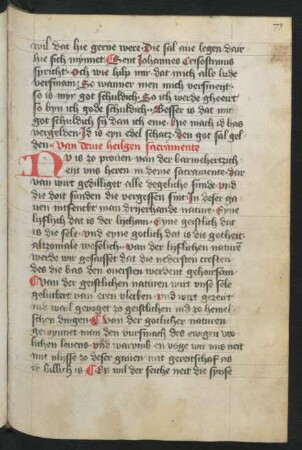 79
wil dat hie gerne were · Die sal ane legen dair
hie sich mynnet Sent Johannes Crisostimus
spricht · Och wie hilp mir dat mich alle lude
versmain · So wanner men mich versmeit ·
so is myr got schuldich · So ich werde gheeirt
so byn ich gode schuldich · Besser is dat mir
got schuldich sy dan ich eme · Ja mach id bas
vergelden · Id is eyn edel schatz · den got sal gel
den · Van deme heilgen sacramente
Nv is zo proven van der barmehertzich
eit uns heren in deme sacramente · dar
van wirt gedilliget alle degeliche sunde · vnd
die doit sunden die vergessen sint · In deser ga
uen intfenckt man dryerhande nature · Eyne
lyfflich dat is der lycham · Eyne geistlich dat
is die sele · vnd eyne gotlich dat is die gotheit
altzomale weselich · van der lyfflichen naturen
werde wir gesuisset dat die nedersten cresten
des die bas den ouersten werdent gehorsam
Van der geistlichen naturen wirt unse sele
gelutert van eren vlecken · vnd wirt gezeirt
vnd wail gevoget zo geistlichen vnd zo hemel
schen dingen · Van der gotlicher naturen
gewynnet man den vursmach des ewigen vro
lichen leuens · vnd warumb en voge wir uns neit
mit vlysse zo deser gauen mit gereitschaf as
id billich is Cen wil der seiche neit die spise